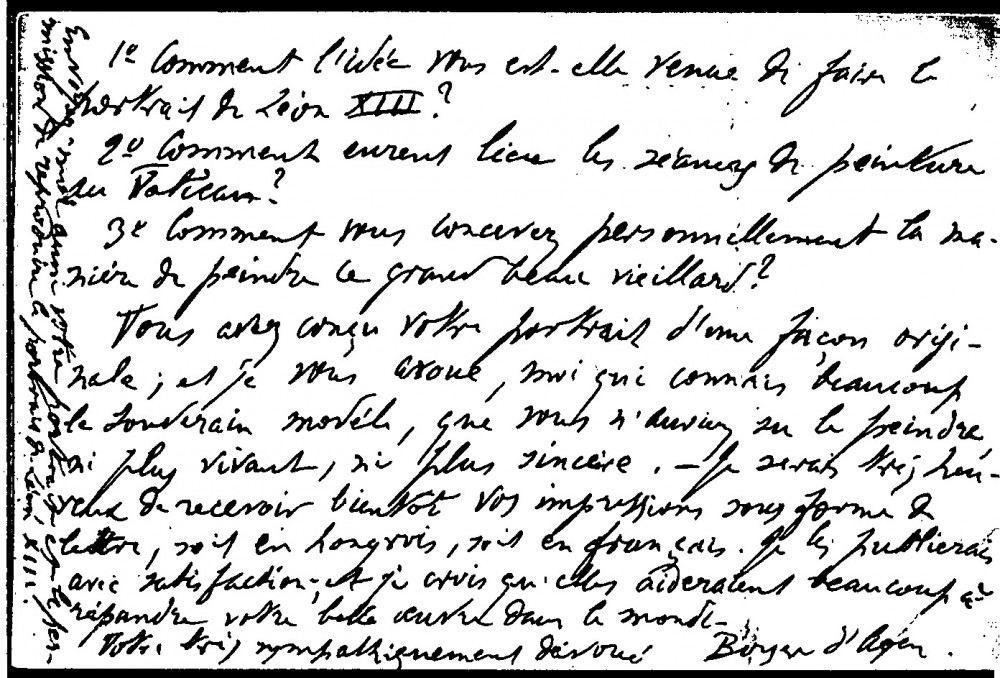 1º Comment l'idée vous est-elle venue de faire le
portrait de Léon XIII ?
2º Comment eurent lieu les séances de peinture
au Vatican ?
3º Comment vous concevez personnellement la ma-
nière de peindre ce grand beau vieillard ?
Vous avez conçu votre portrait d'une façon origi-
nale ; et je vous avoue, moi qui connais beaucoup
le souverain modèle, que vous n'auriez su le peindre
ni plus vivant, ni plus sincère. — Je serais très heu-
reux de recevoir bientôt vos impressions sous forme de
lettre, soit en hongrois, soit en français. Je les publierais
avec satisfaction ; et je crois qu'elles aideraient beaucoup à
répandre votre belle œuvre dans le monde.
Votre très sympathiquement dévoué Boyer d'Agen.
Envoyez-moi aussi votre portrait et la per-
mission de reproduire le portrait de Léon XIII.